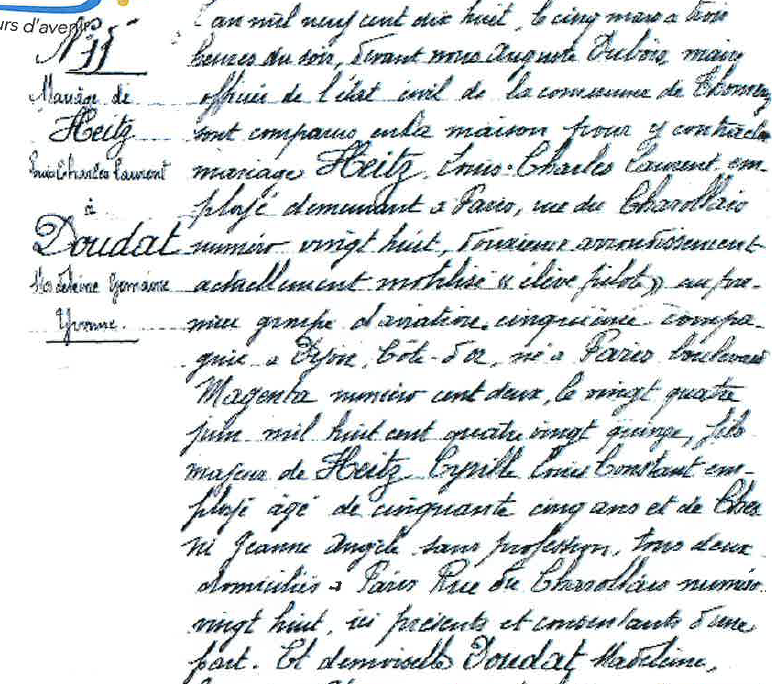 urs d'avenir
N° 11
Mariage de
Heitz
Louis Charles Laurent
à
Doudat
Madeleine Germaine
Yvonne.
L'an mil neuf cent dix huit, le cinq mars a trois
heures du soir, devant nous Auguste Dubois, maire
officier de l'état civil de la commune de Thomery
sont comparus en la maison pour y contracter
mariage Heitz, Louis-Charles Laurent em-
ployé demeurant a Paris, rue du Charollais
numéro vingt huit, douzième arrondissement
actuellement mobilisé « élève pilote » au pre-
mier groupe d'aviation, cinquième compa-
gnie a Dijon, Côte-d'or, né a Paris boulevard
Magenta numéro cent deux, le vingt quatre
juin mil huit cent quatre vingt quinze, fils
majeur de Heitz Cyrille Louis Constant em-
ployé âgé de cinquante cinq ans et de
Jeanne Angèle sans profession, tous deux
domiciliés a Paris Rue du Charollais numéro
vingt huit, ici présents et consentants d'une
part. Et demoiselle Doudat Madeleine,